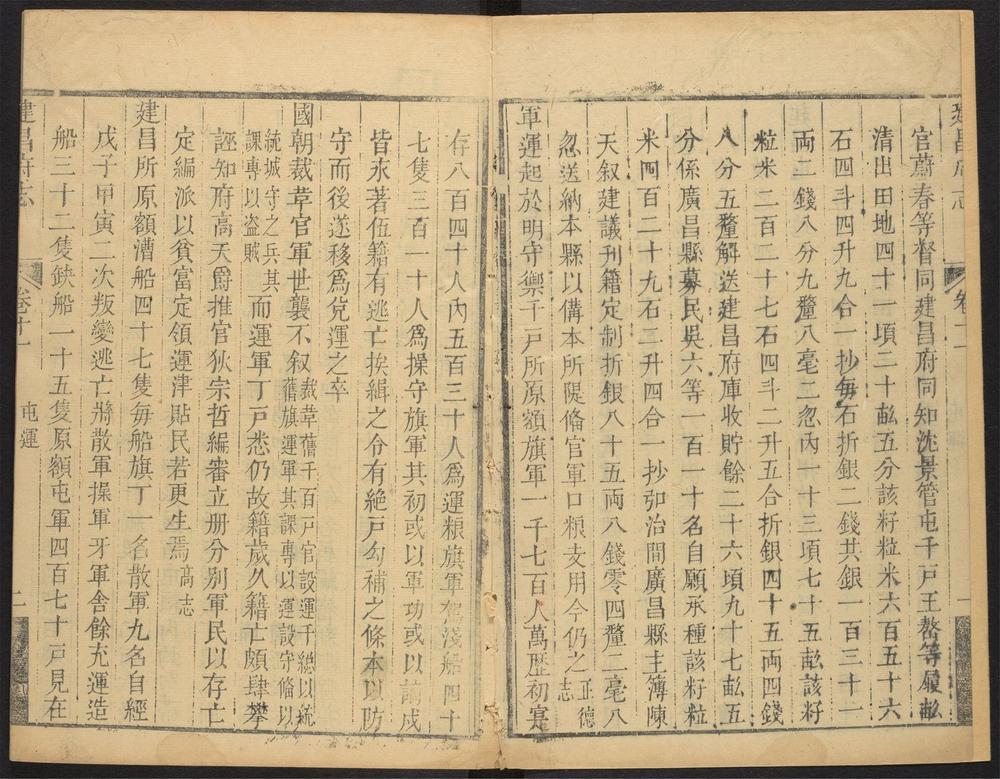 建昌府志
卷十一
一
官蔚春等督同建昌府同知沈景管屯千戶王鰲等履畝
清出田地四十一項二十畝五分該籽粒米六百五十六
石四斗四升九合一抄每石折銀二錢共銀一百三十一
兩二錢八分九釐八毫二忽內一十三項七十五畝該籽
粒米二百二十七石四斗二升五合折銀四十五兩四錢
八分五釐解送建昌府庫收貯餘二十六項九十七畝五
分係廣昌縣募民吳六等一百一十名自願承種該籽粒
米四百二十九石二升四合一抄弘治間廣昌縣主簿陳
天叙建議刊籍定制折銀八十五兩八錢零四釐二毫八
忽送納本縣以備本所隄備官軍口粮支用今仍之正德志
軍運起於明守禦千戶所原額旗軍一千七百人萬歷初寔
存八百四十人內五百三十人為運粮旗軍駕淺船四十
七隻三百一十人為操守旗軍其初或以軍功或以謫戍
皆永著伍籍有逃亡挨緝之分有絕戶勾補之條本以防
守而後遂移為兌運之卒
國朝裁革官軍世襲不叙裁革舊千百戶官設運千總以統舊旗運軍其課專以運設守備以統城守之兵其課專以盜賊而運軍丁戶悉仍故籍歲久籍亡頗肆攀
誣知府高天爵推官狄宗哲編審立册分别軍民以存亡
定編派以貧富定領運津貼民若更生焉高志
建昌所原額漕船四十七隻每船旗丁一名散軍九名自經
戊子甲寅二次叛變逃亡將散軍操軍牙軍舍餘充運造
船三十二隻缺船一十五隻原額屯軍四百七十戶見在
建昌府志
卷十一
屯運
二